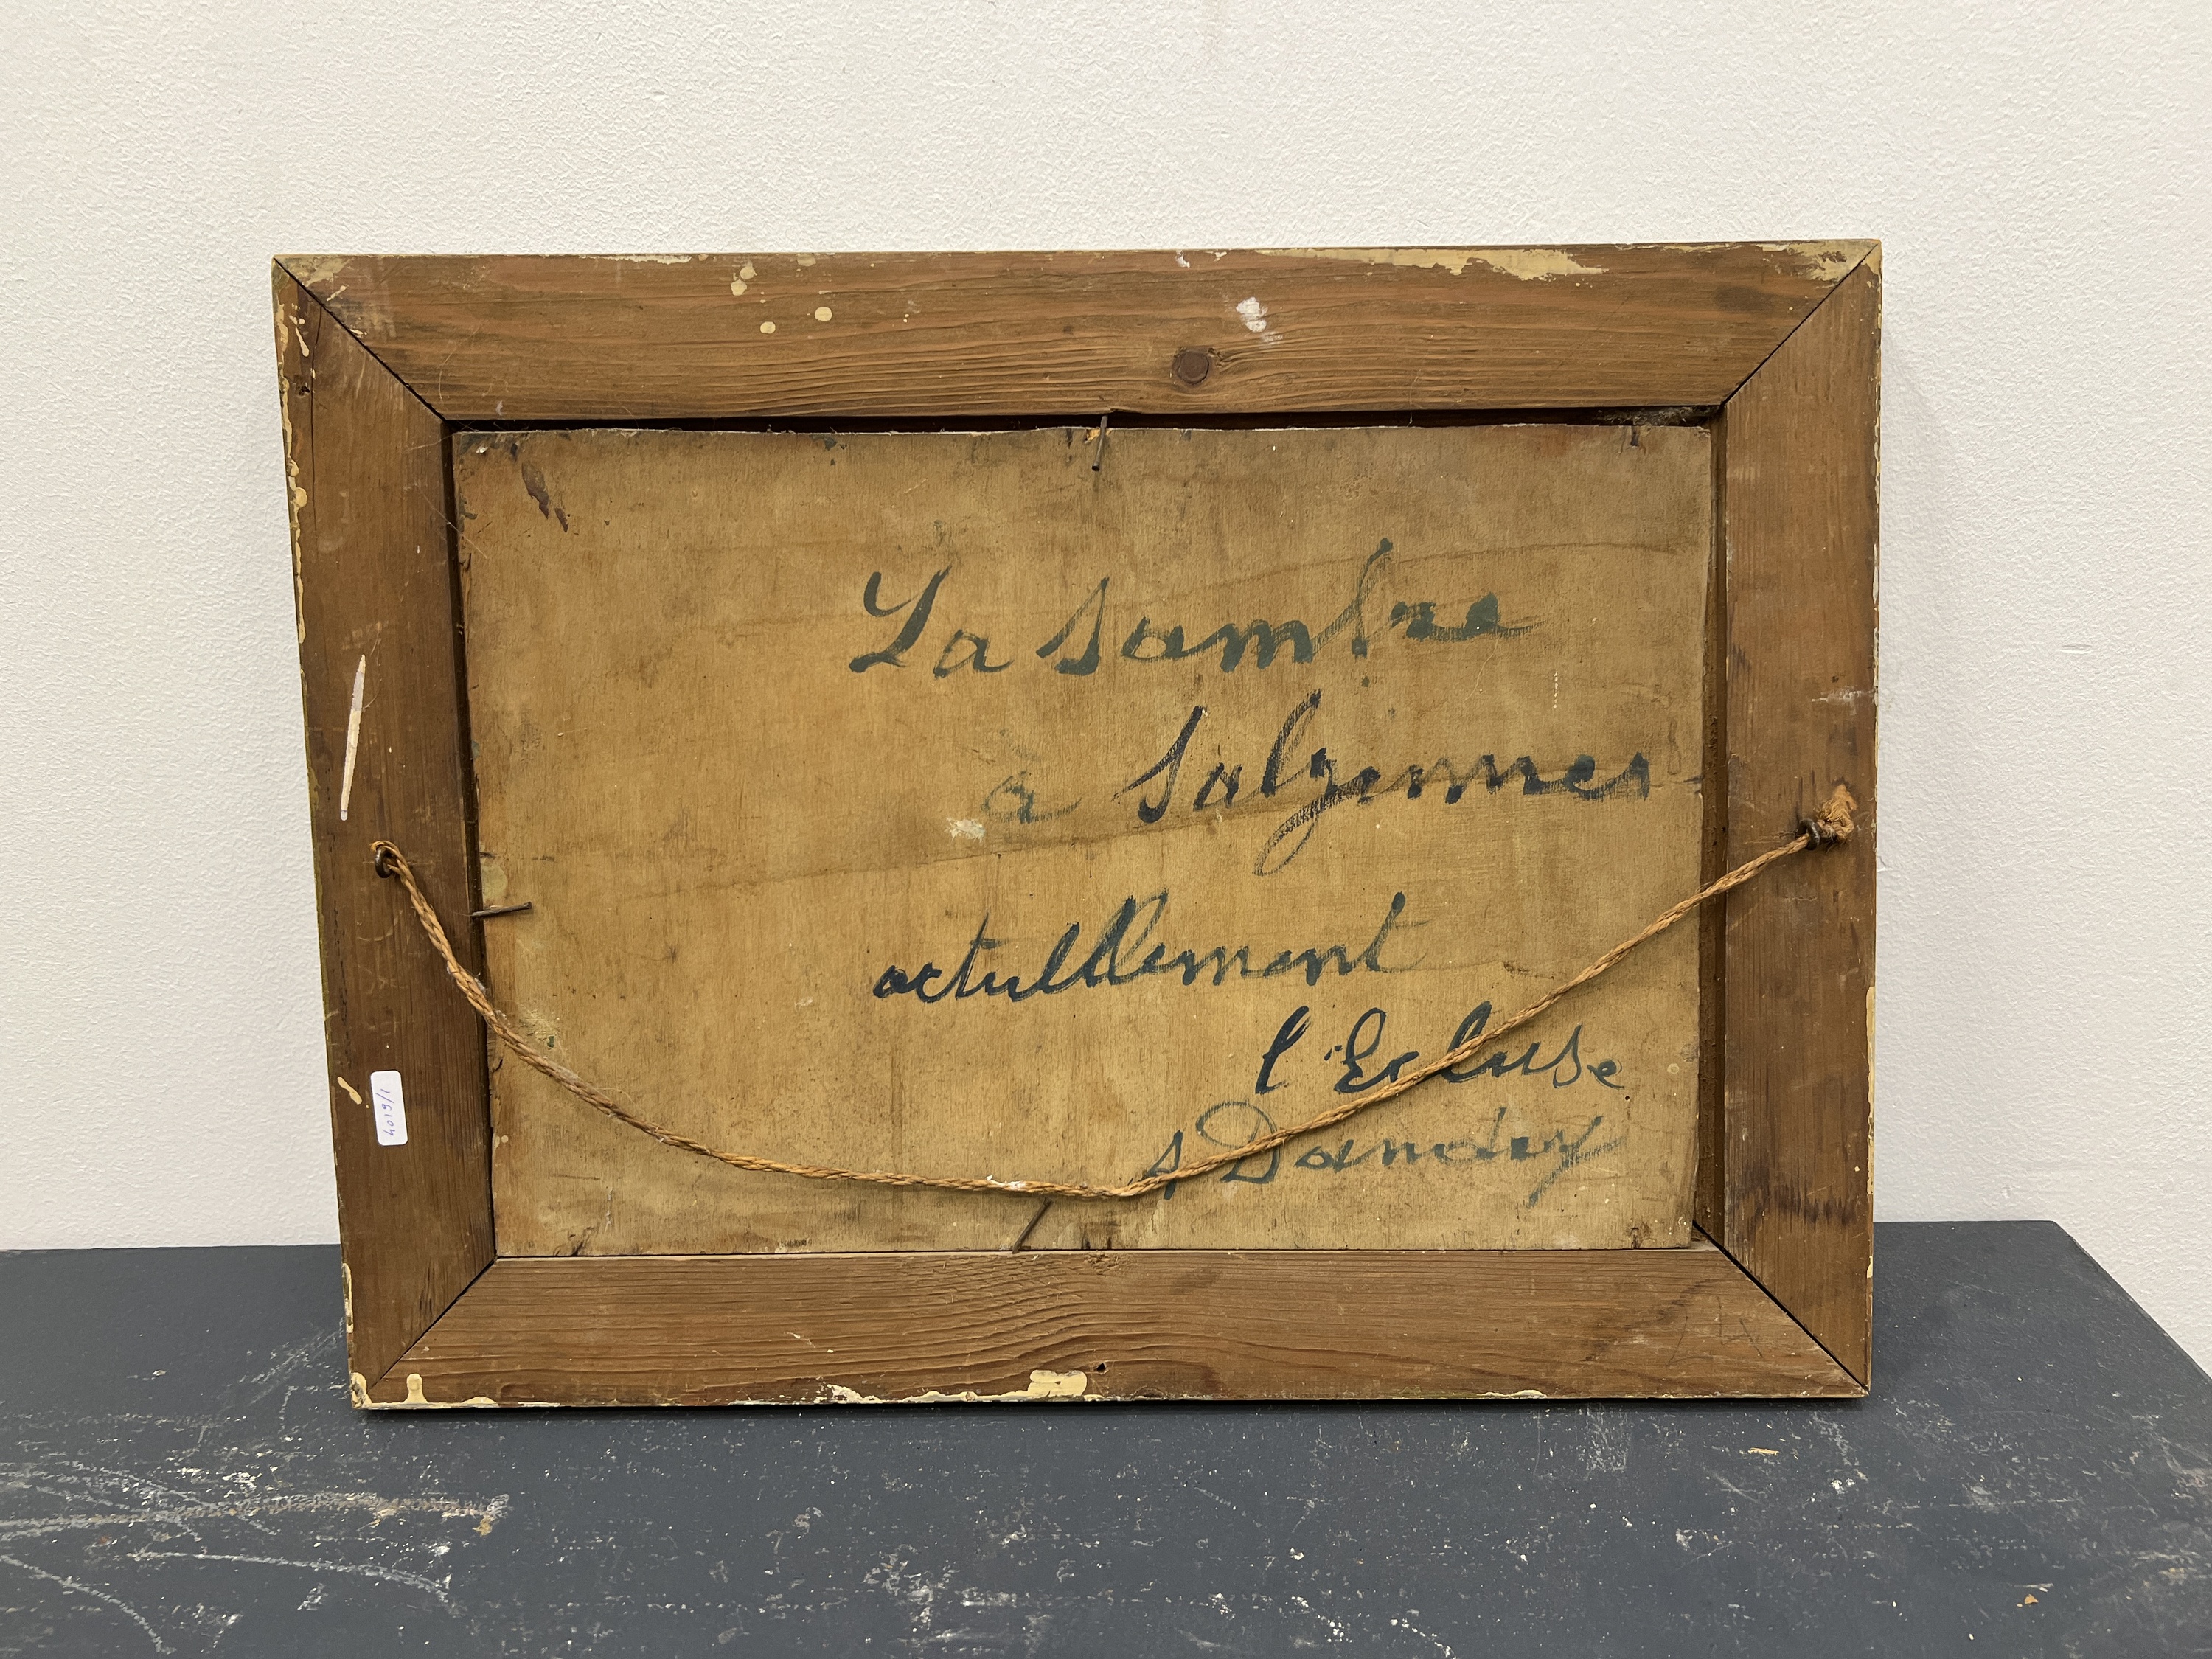 La Sambre
à Salzinnes
actulllement
l'Ecluse
Dandoy
4019/1
24